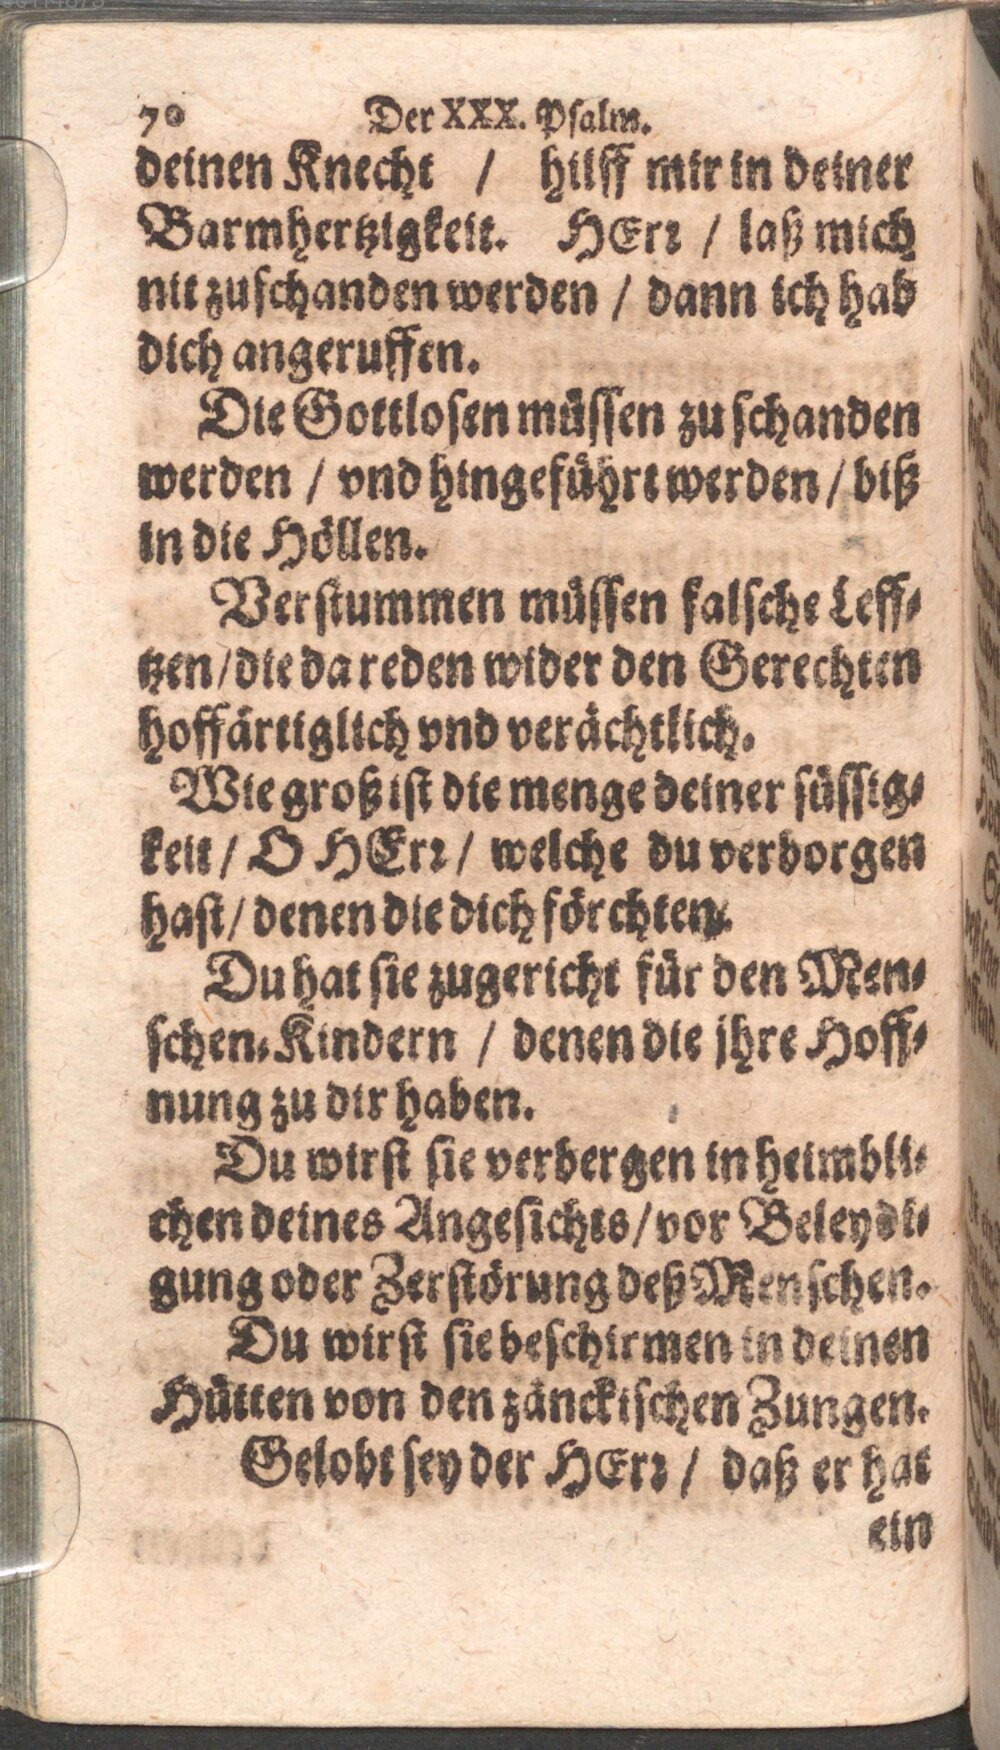 70 Der XXX. Psalm.
deinen Knecht / hilff mir in deiner
Barmhertzigkeit. HErr / laß mich
nit zuschanden werden / dann ich hab
dich angeruffen.
Die Gottlosen müssen zu schanden
werden / vnd hingeführt werden / biß
in die Höllen.
Verstummen müssen falsche Leff-
tzen / die da reden wider den Gerechten
hoffärtiglich vnd verächtlich.
Wie groß ist die menge deiner süssig-
keit / O HErr / welche du verborgen
hast / denen die dich förchten.
Du hat sie zugericht für den Men-
schen-Kindern / denen die jhre Hoff-
nung zu dir haben.
Du wirst sie verbergen in heimbli-
chen deines Angesichts / vor Beleydi-
gung oder Zerstörung deß Menschen.
Du wirst sie beschirmen in deinen
Hütten von den zänckischen Zungen.
Gelobt sey der HErr / daß er hat
ein